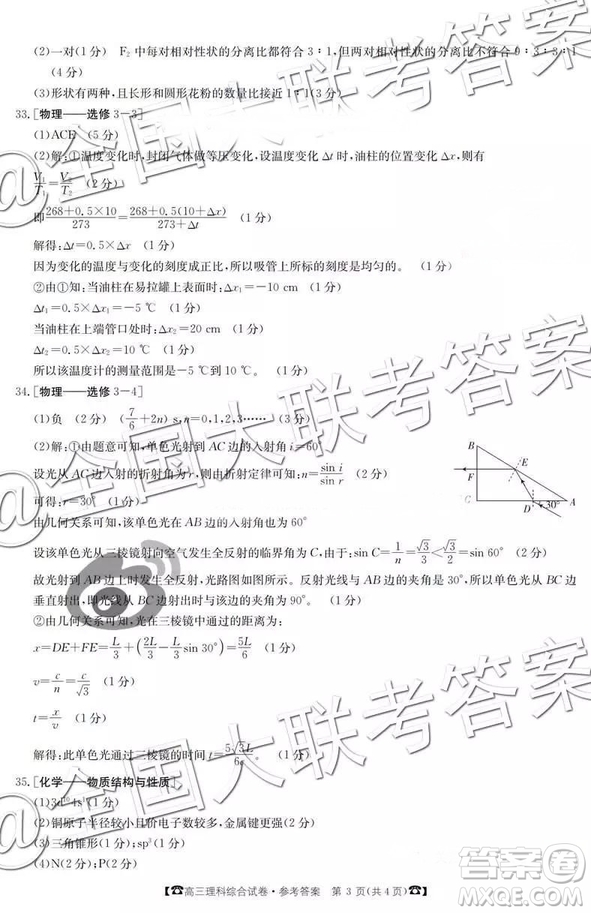 (2)一对(1分) F₂中每对相对性状的分离比都符合3∶1,但两对相对性状的分离比不符合9∶3∶3∶1
(4分)
(3)形状有两种,且长形和圆形花粉的数量比接近1∶1(3分)
33.[物理——选修3-3]
(1)ACE (5分)
(2)解:①温度变化时,封闭气体做等压变化,设温度变化Δt时,油柱的位置变化Δx,则有
V₁/T₁=V₂/T₂ (2分)
即(268+0.5×10)/273=(268+0.5(10+Δx))/(273+Δt) (1分)
解得:Δt=0.5×Δx (1分)
因为变化的温度与变化的刻度成正比,所以吸管上的刻度是均匀的。 (1分)
②由①知:当油柱在易拉罐上端管口处时:Δx₁=-10 cm (1分)
Δt₁=0.5×Δx₁=-5 ℃ (1分)
当油柱在上端管口处时:Δx₂=20 cm (1分)
Δt₂=0.5×Δx₂=10 ℃ (1分)
所以该温度计的测量范围是-5 ℃到10 ℃。 (1分)
34.[物理——选修3-4]
(1)负 (2分) (7/6+2n) s,n=0,1,2,3…… (3分)
(2)解:①由题意可知,单色光射到AC边的入射角i=60°
设光从AC边入射的折射角为r,则由折射定律可知:n=sin i/sin r (2分)
可得:r=30° (1分)
由几何关系可知,该单色光在AB边的入射角也为60°
设该单色光从三棱镜射向空气发生全反射的临界角为C,由于:sin C=1/n=√3/3<√3/2 (2分)
故光射到AB边上时发生全反射,光路图如图。反射光线与AB边的夹角是30°,所以光从BC边
垂直射出,即光线从BC边射出时与该边的夹角为90°。 (1分)
②由几何关系可知,光在三棱镜中通过的距离为:
x=DE+FE=L/3+(2L/3-L/3 sin 30°)=5L/6 (1分)
v=c/n=c/√3 (1分)
t=x/v (1分)
解得:此单色光通过三棱镜的时间t=5√3L/6c (1分)
B
E
F
C
D
30°
A
35.[化学——物质结构与性质]
(1)3d¹⁰4s¹(1分)
(2)铜原子半径较小且价电子数较多,金属键更强(2分)
(3)三角锥形(1分);sp³(1分)
(4)N(2分);P(2分)
☎高三理科综合试卷·参考答案 第3页(共4页)☎
@全国大联考答案
@全国大联考答案
答案圈